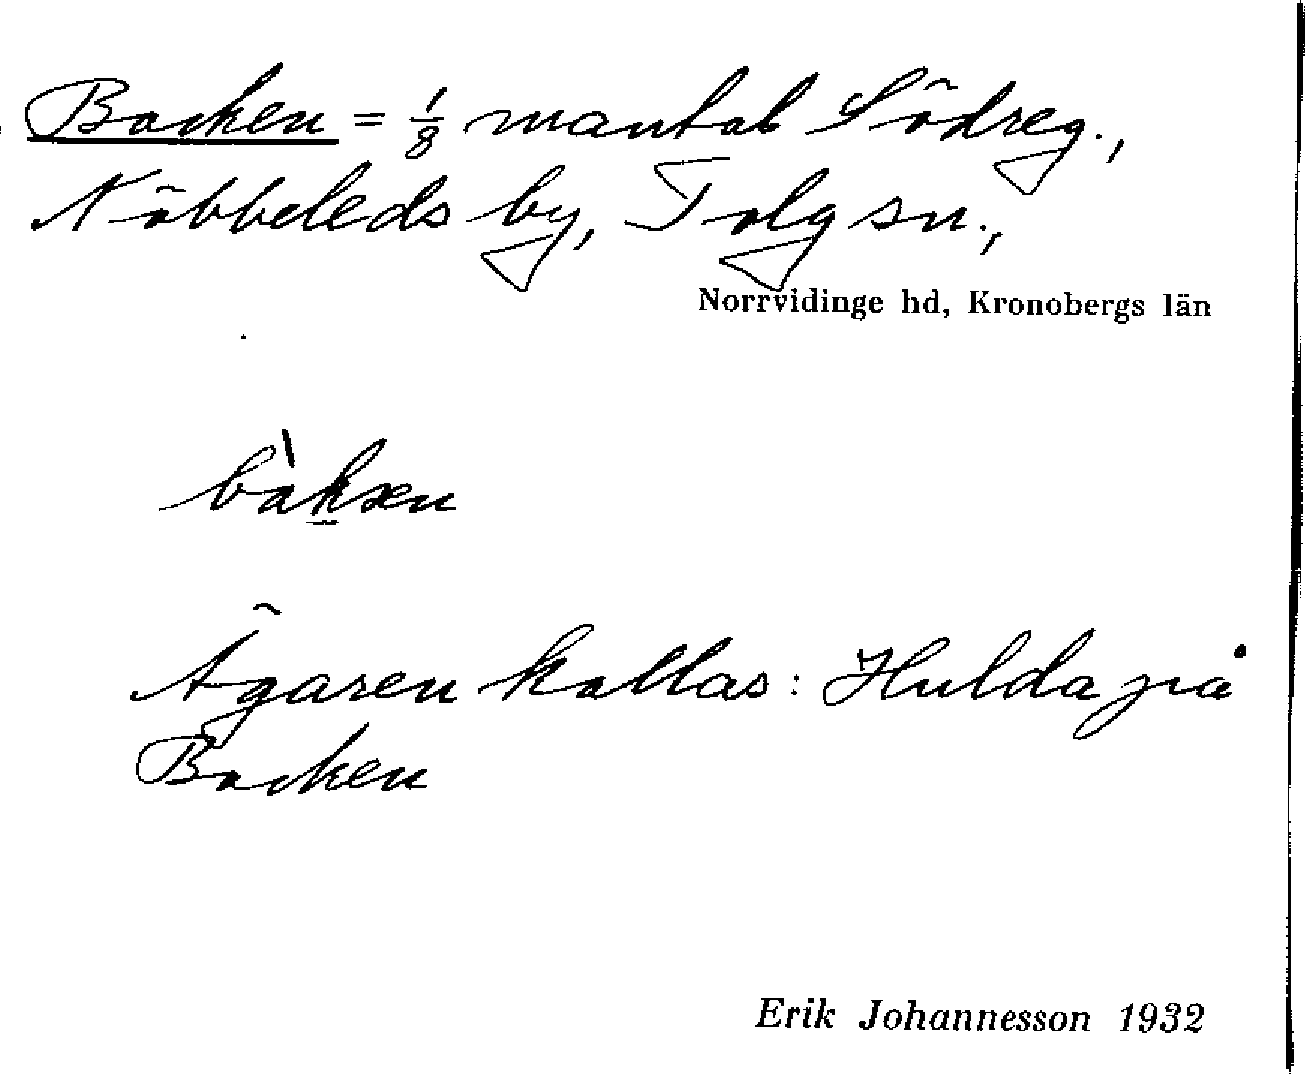 Backen = 1/8 mantal Södreg.,
Nöbbeleds by, Tolg sn.,
Norrvidinge hd, Kronobergs län
bàk̠æn
Ägaren kallas: Hulda på
Backen
Erik Johannesson 1932